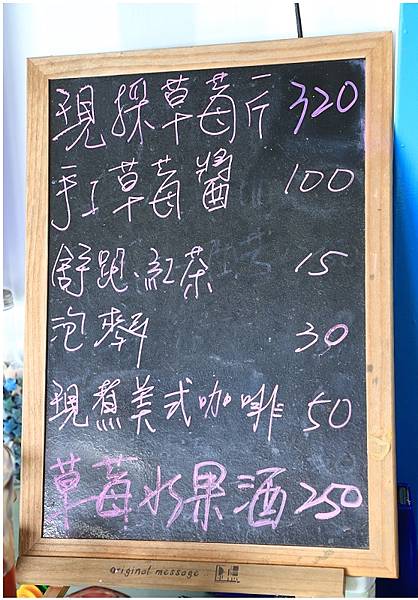 現採草莓斤 320
手工草莓醬 100
舒跑.紅茶 15
泡麵 30
現煮美式咖啡 50
草莓水果酒 250
original message